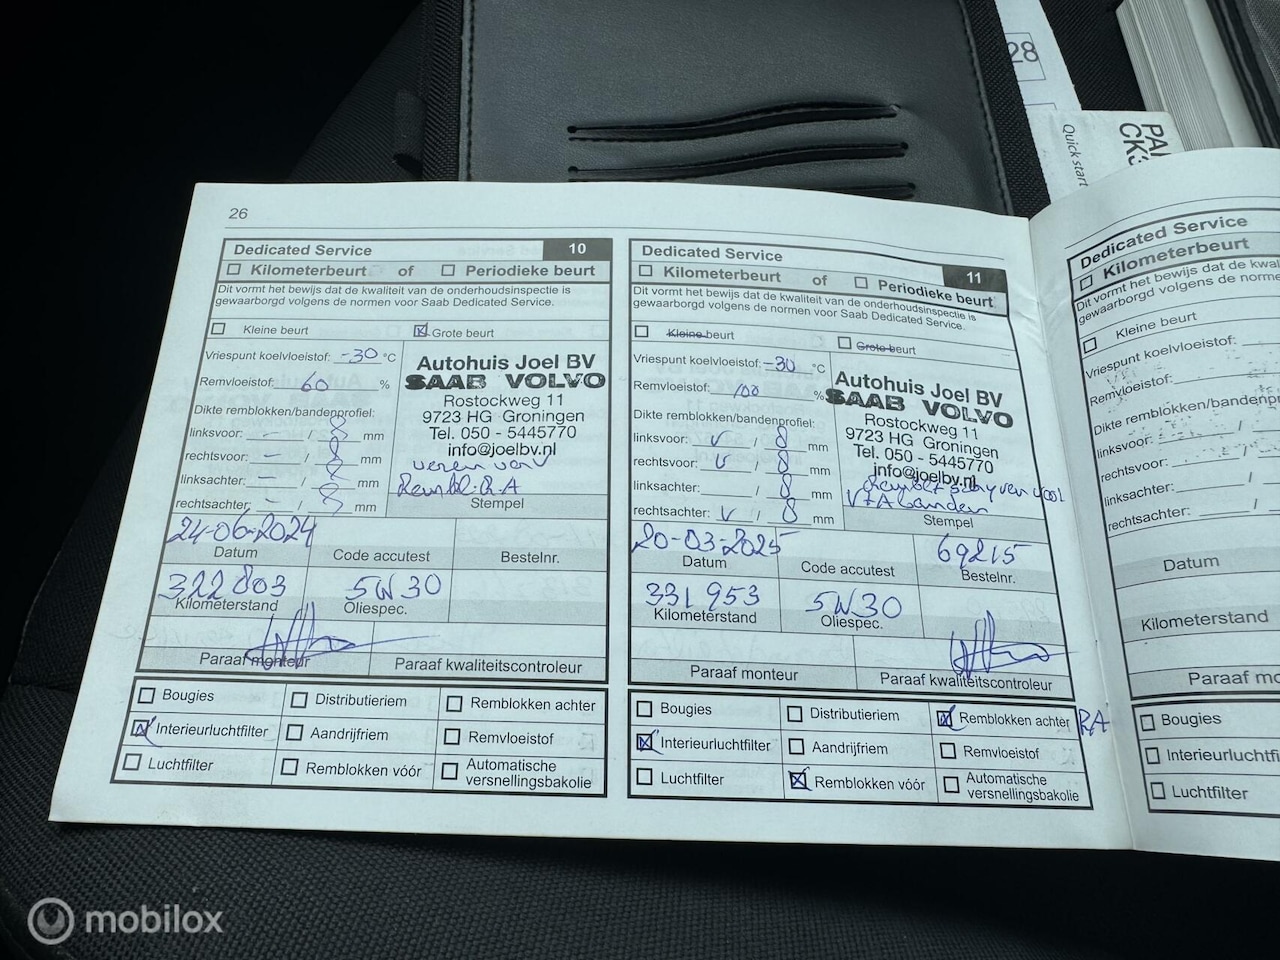 28
PA
CK
Quick start
26
Dedicated Service 10
Kilometerbeurt of Periodieke beurt
Dit vormt het bewijs dat de kwaliteit van de onderhoudsinspectie is
gewaarborgd volgens de normen voor Saab Dedicated Service.
Kleine beurt Grote beurt
Vriespunt koelvloeistof: -30 °C
Remvloeistof: 60 %
Dikte remblokken/bandenprofiel:
linksvoor: - / 8 mm
rechtsvoor: - / 8 mm
linksachter: - / 8 mm
rechtsachter: - / 8 mm
Autohuis Joel BV
SAAB VOLVO
Rostockweg 11
9723 HG Groningen
Tel. 050 - 5445770
info@joelbv.nl
veren voor
Rembl. R.A
Stempel
24-06-2024
Datum Code accutest Bestelnr.
322803 5W30
Kilometerstand Oliespec.
Paraaf monteur Paraaf kwaliteitscontroleur
Bougies Distributieriem Remblokken achter
Interieurluchtfilter Aandrijfriem Remvloeistof
Luchtfilter Remblokken vóór Automatische
versnellingsbakolie
Dedicated Service 11
Kilometerbeurt of Periodieke beurt
Dit vormt het bewijs dat de kwaliteit van de onderhoudsinspectie is
gewaarborgd volgens de normen voor Saab Dedicated Service.
Kleine beurt Grote beurt
Vriespunt koelvloeistof: -30 °C
Remvloeistof: 100 %
Dikte remblokken/bandenprofiel:
linksvoor: v / 8 mm
rechtsvoor: v / 8 mm
linksachter: / 8 mm
rechtsachter: v / 8 mm
Autohuis Joel BV
SAAB VOLVO
Rostockweg 11
9723 HG Groningen
Tel. 050 - 5445770
info@joelbv.nl
V+A banden
Stempel
20-03-2025 69215
Datum Code accutest Bestelnr.
331953 5W30
Kilometerstand Oliespec.
Paraaf monteur Paraaf kwaliteitscontroleur
Bougies Distributieriem Remblokken achter R,A
Interieurluchtfilter Aandrijfriem Remvloeistof
Luchtfilter Remblokken vóór Automatische
versnellingsbakolie
Dedicated Service
Kilometerbeurt
Dit vormt het bewijs dat de kwa
gewaarborgd volgens de norme
Kleine beurt
Vriespunt koelvloeistof:
Remvloeistof:
Dikte remblokken/bandenpr
linksvoor: /
rechtsvoor: /
linksachter: /
rechtsachter: /
Datum
Kilometerstand
Paraaf mo
Bougies
Interieurluchtfi
Luchtfilter
mobilox